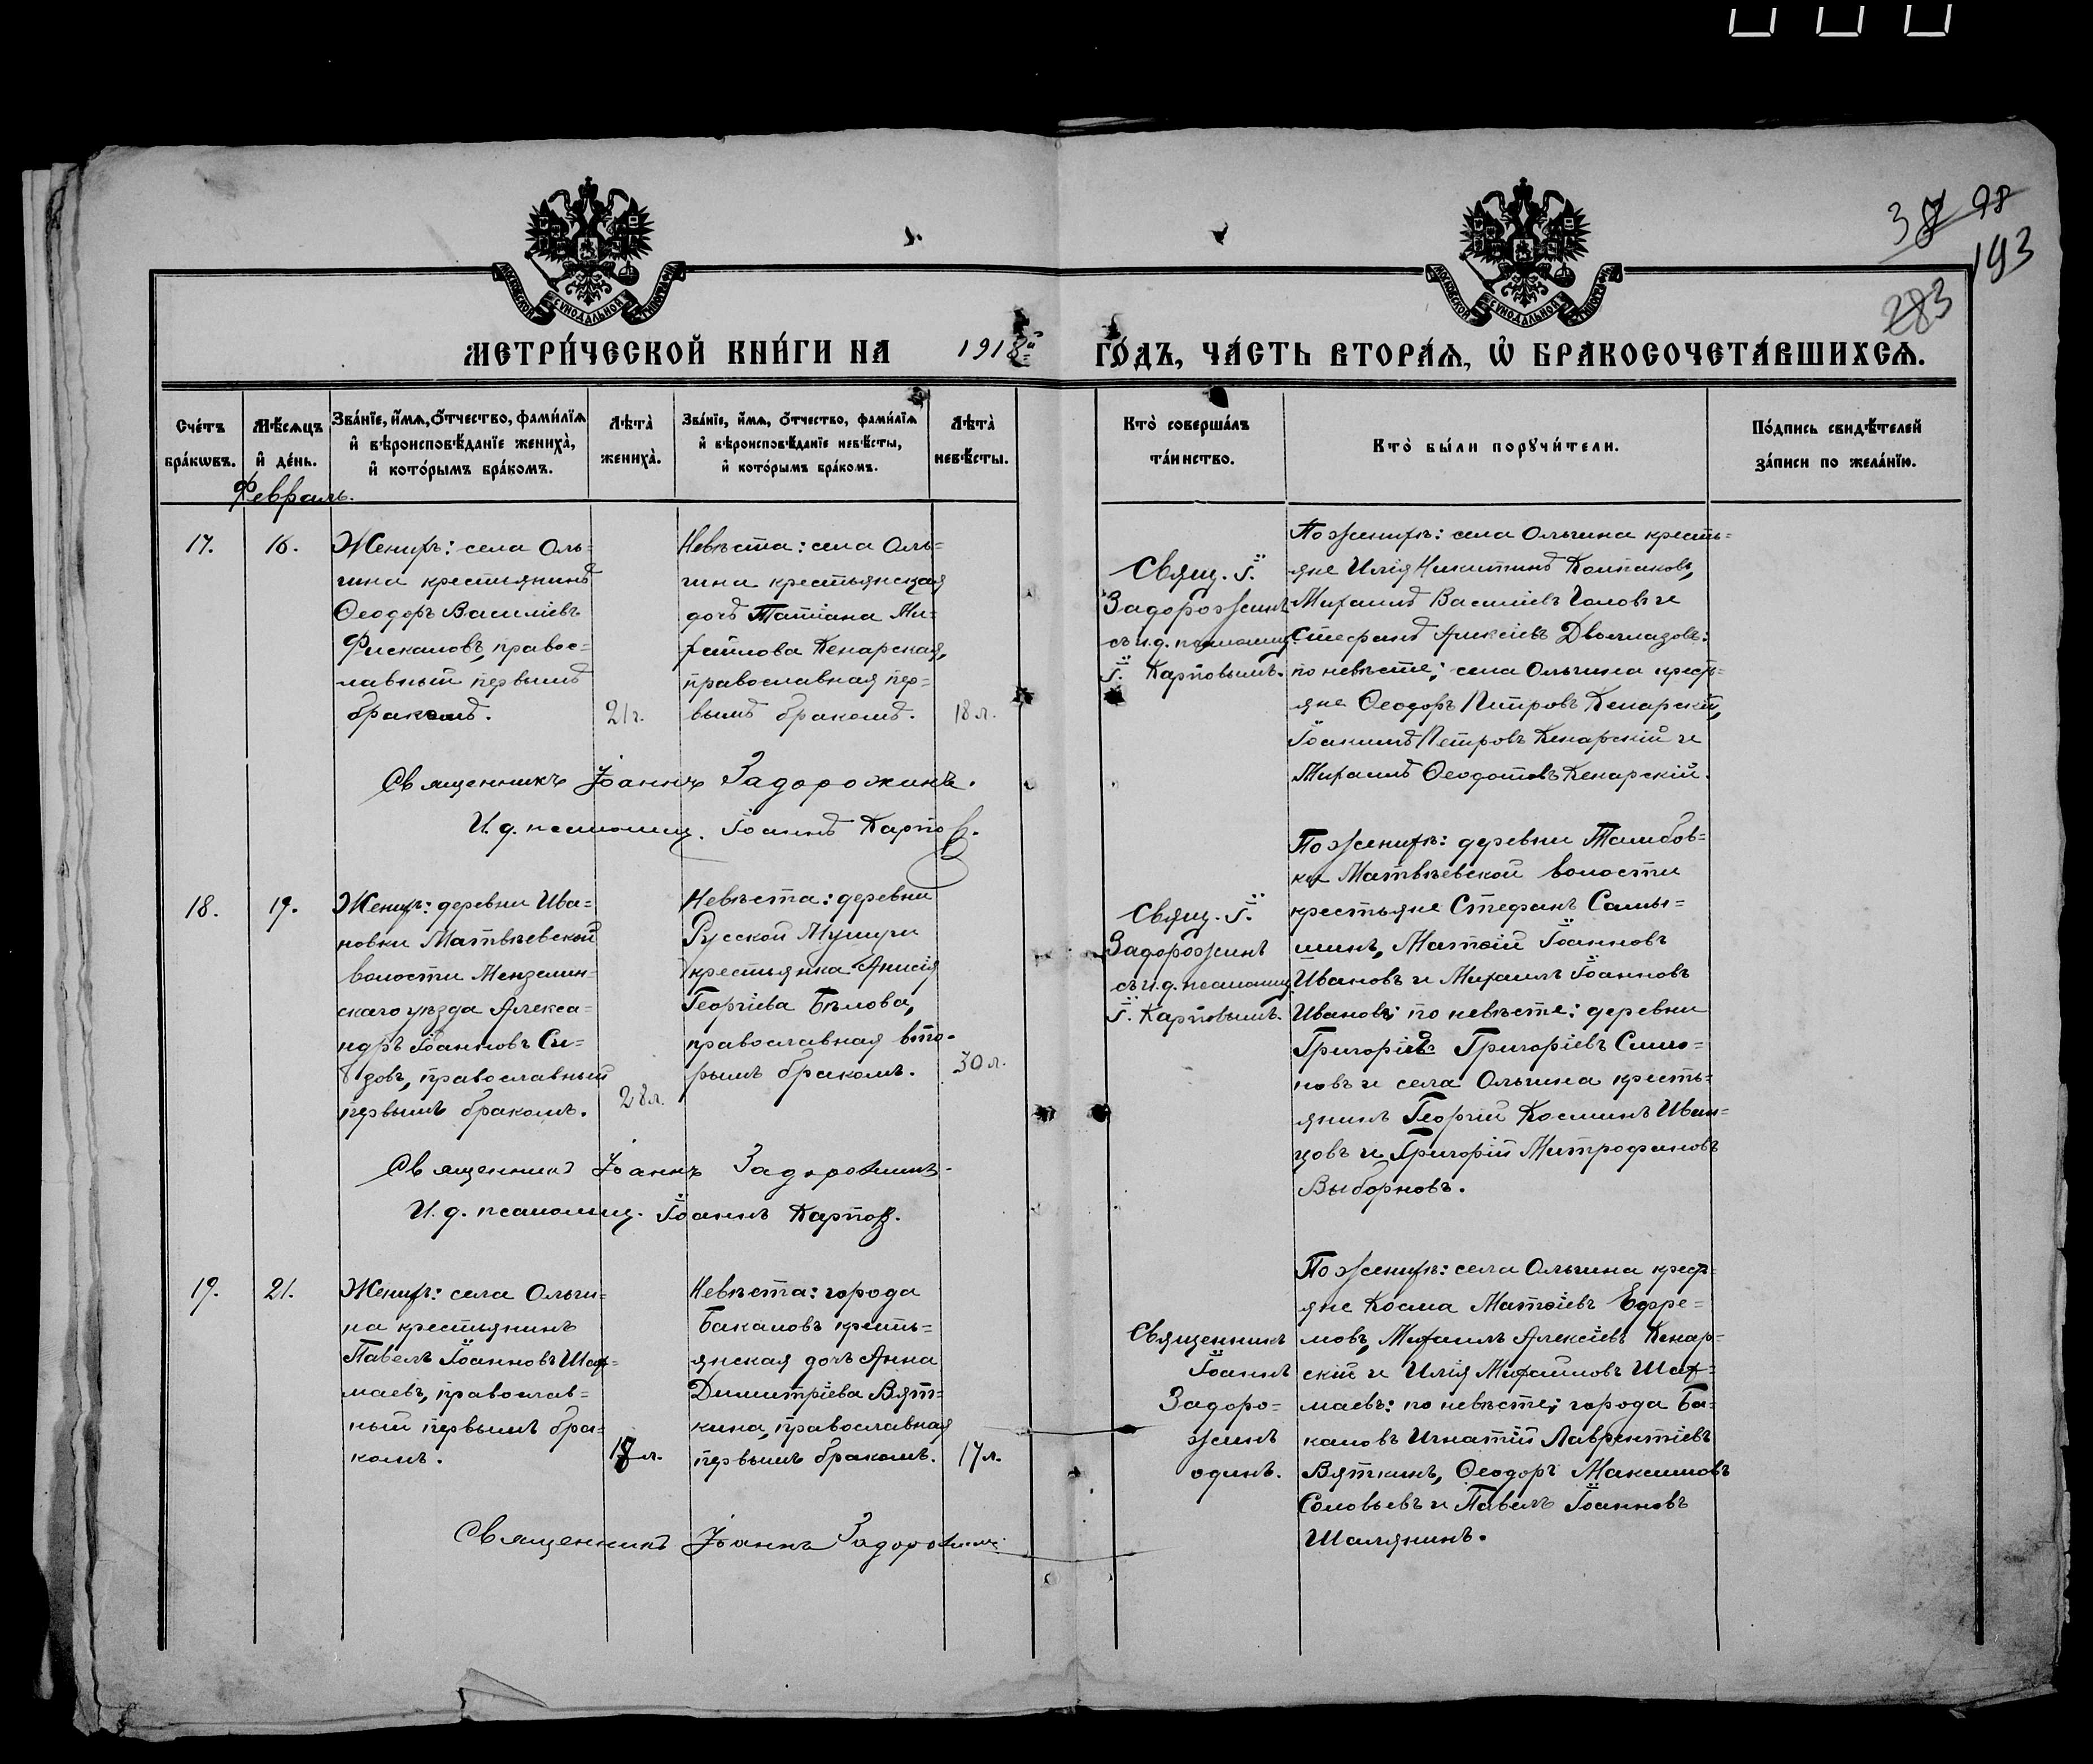 37 98
193
283
МОСКОВСКОЙ СУНОДАЛЬНОЙ ТИПОГРАФІИ
МОСКОВСКОЙ СУНОДАЛЬНОЙ ТИПОГРАФІИ
МЕТРИ́ЧЕСКОЙ КНИ́ГИ НА 1918й ГО́ДЪ, ЧА́СТЬ ВТОРА́Я, Ѡ҆ БРАКОСОЧЕТА́ВШИХСЯ.
Сче́тъ бра́кѡвъ.
Мѣ́сяцъ и҆ де́нь.
Зва́нїе, и҆́мя, ѻ҆́тчество, фами́лїя и҆ вѣроисповѣ́данїе жениха̀, и҆ кото́рымъ бра́комъ.
Лѣта̀ жениха̀.
Зва́нїе, и҆́мя, ѻ҆́тчество, фами́лїя и҆ вѣроисповѣ́данїе невѣ́сты, и҆ кото́рымъ бра́комъ.
Лѣта̀ невѣ́сты.
Кто̀ соверша́лъ та́инство.
Кто̀ бы́ли порꙋчи́тели.
По́дпись свидѣ́телей за́писи по жела́нїю.
Февраль.
17.
16.
Женихъ: села Оль=
гина крестьянинъ
Ѳеодоръ Василіевъ
Фискаловъ, правос=
лавный первымъ
бракомъ.
21 г.
Невѣста: села Оль=
гина крестьянская
дочь Татіана Ми=
хайлова Кенарская,
православная пер=
вымъ бракомъ.
18 л.
Свящ. І.
Задорожинъ
съ и.д. псаломщ.
І. Карповымъ.
По женихѣ: села Ольгина кресть=
яне Илія Никитинъ Колпаковъ,
Михаилъ Василіевъ и
Стефанъ Алексіевъ
по невѣсте; села Ольгина крест=
яне Ѳеодоръ Петровъ Кенарскій,
Іоакимъ Петровъ Кенарскій и
Михаилъ Ѳеодотовъ Кенарскій.
Священникъ Іоаннъ Задорожинъ.
И. д. псаломщ. Іоаннъ Карповъ.
18.
19.
Женихъ: деревни Ива=
новки Матвѣевской
волости Мензелин=
скаго уѣзда Алекса=
ндръ Іоанновъ Си=
зовъ, православный
первымъ бракомъ.
28 л.
Невѣста: деревни
Русской Мушуги
крестьянка Анисія
Георгіева Бѣлова,
православная вто=
рымъ бракомъ.
30 л.
Свящ. І.
Задорожинъ
съ и.д. псаломщ.
І. Карповымъ.
По женихѣ: деревни Тамбов=
ки Матвѣевской волости
крестьяне Стефанъ Самы=
шинъ, Матѳій Іоанновъ
Ивановъ и Михаилъ Іоанновъ
Ивановъ; по невѣсте; деревни
Григоріевъ
новъ и села Ольгина кресть=
янинъ Георгій Косминъ Иван=
цовъ и Григорій Митрофановъ
Выборновъ.
Священникъ Іоаннъ Задорожинъ.
И. д. псаломщ. Іоаннъ Карповъ.
19.
21.
Женихъ: села Ольги=
на крестьянинъ
Павелъ Іоанновъ Шах=
маевъ, православ=
ный первымъ бра=
комъ.
18 л.
Невѣста: города
Бакаловъ кресть=
янская дочь Анна
Димитріева Вят=
кина, православная
первымъ бракомъ.
17 л.
Священникъ
Іоаннъ
Задоро=
жинъ
одинъ.
По женихѣ: села Ольгина крест=
яне Косма Матѳіевъ Ефре=
мовъ, Михаилъ Алексіевъ Кенар=
скій и Илія Михаиловъ Шах=
маевъ: по невѣсте; города Ба=
каловъ Игнатій Лаврентіевъ
Вяткинъ, Ѳеодоръ Максимовъ
Соловьевъ и Павелъ Іоанновъ
Шалянинъ.
Священникъ Іоаннъ Задорожинъ